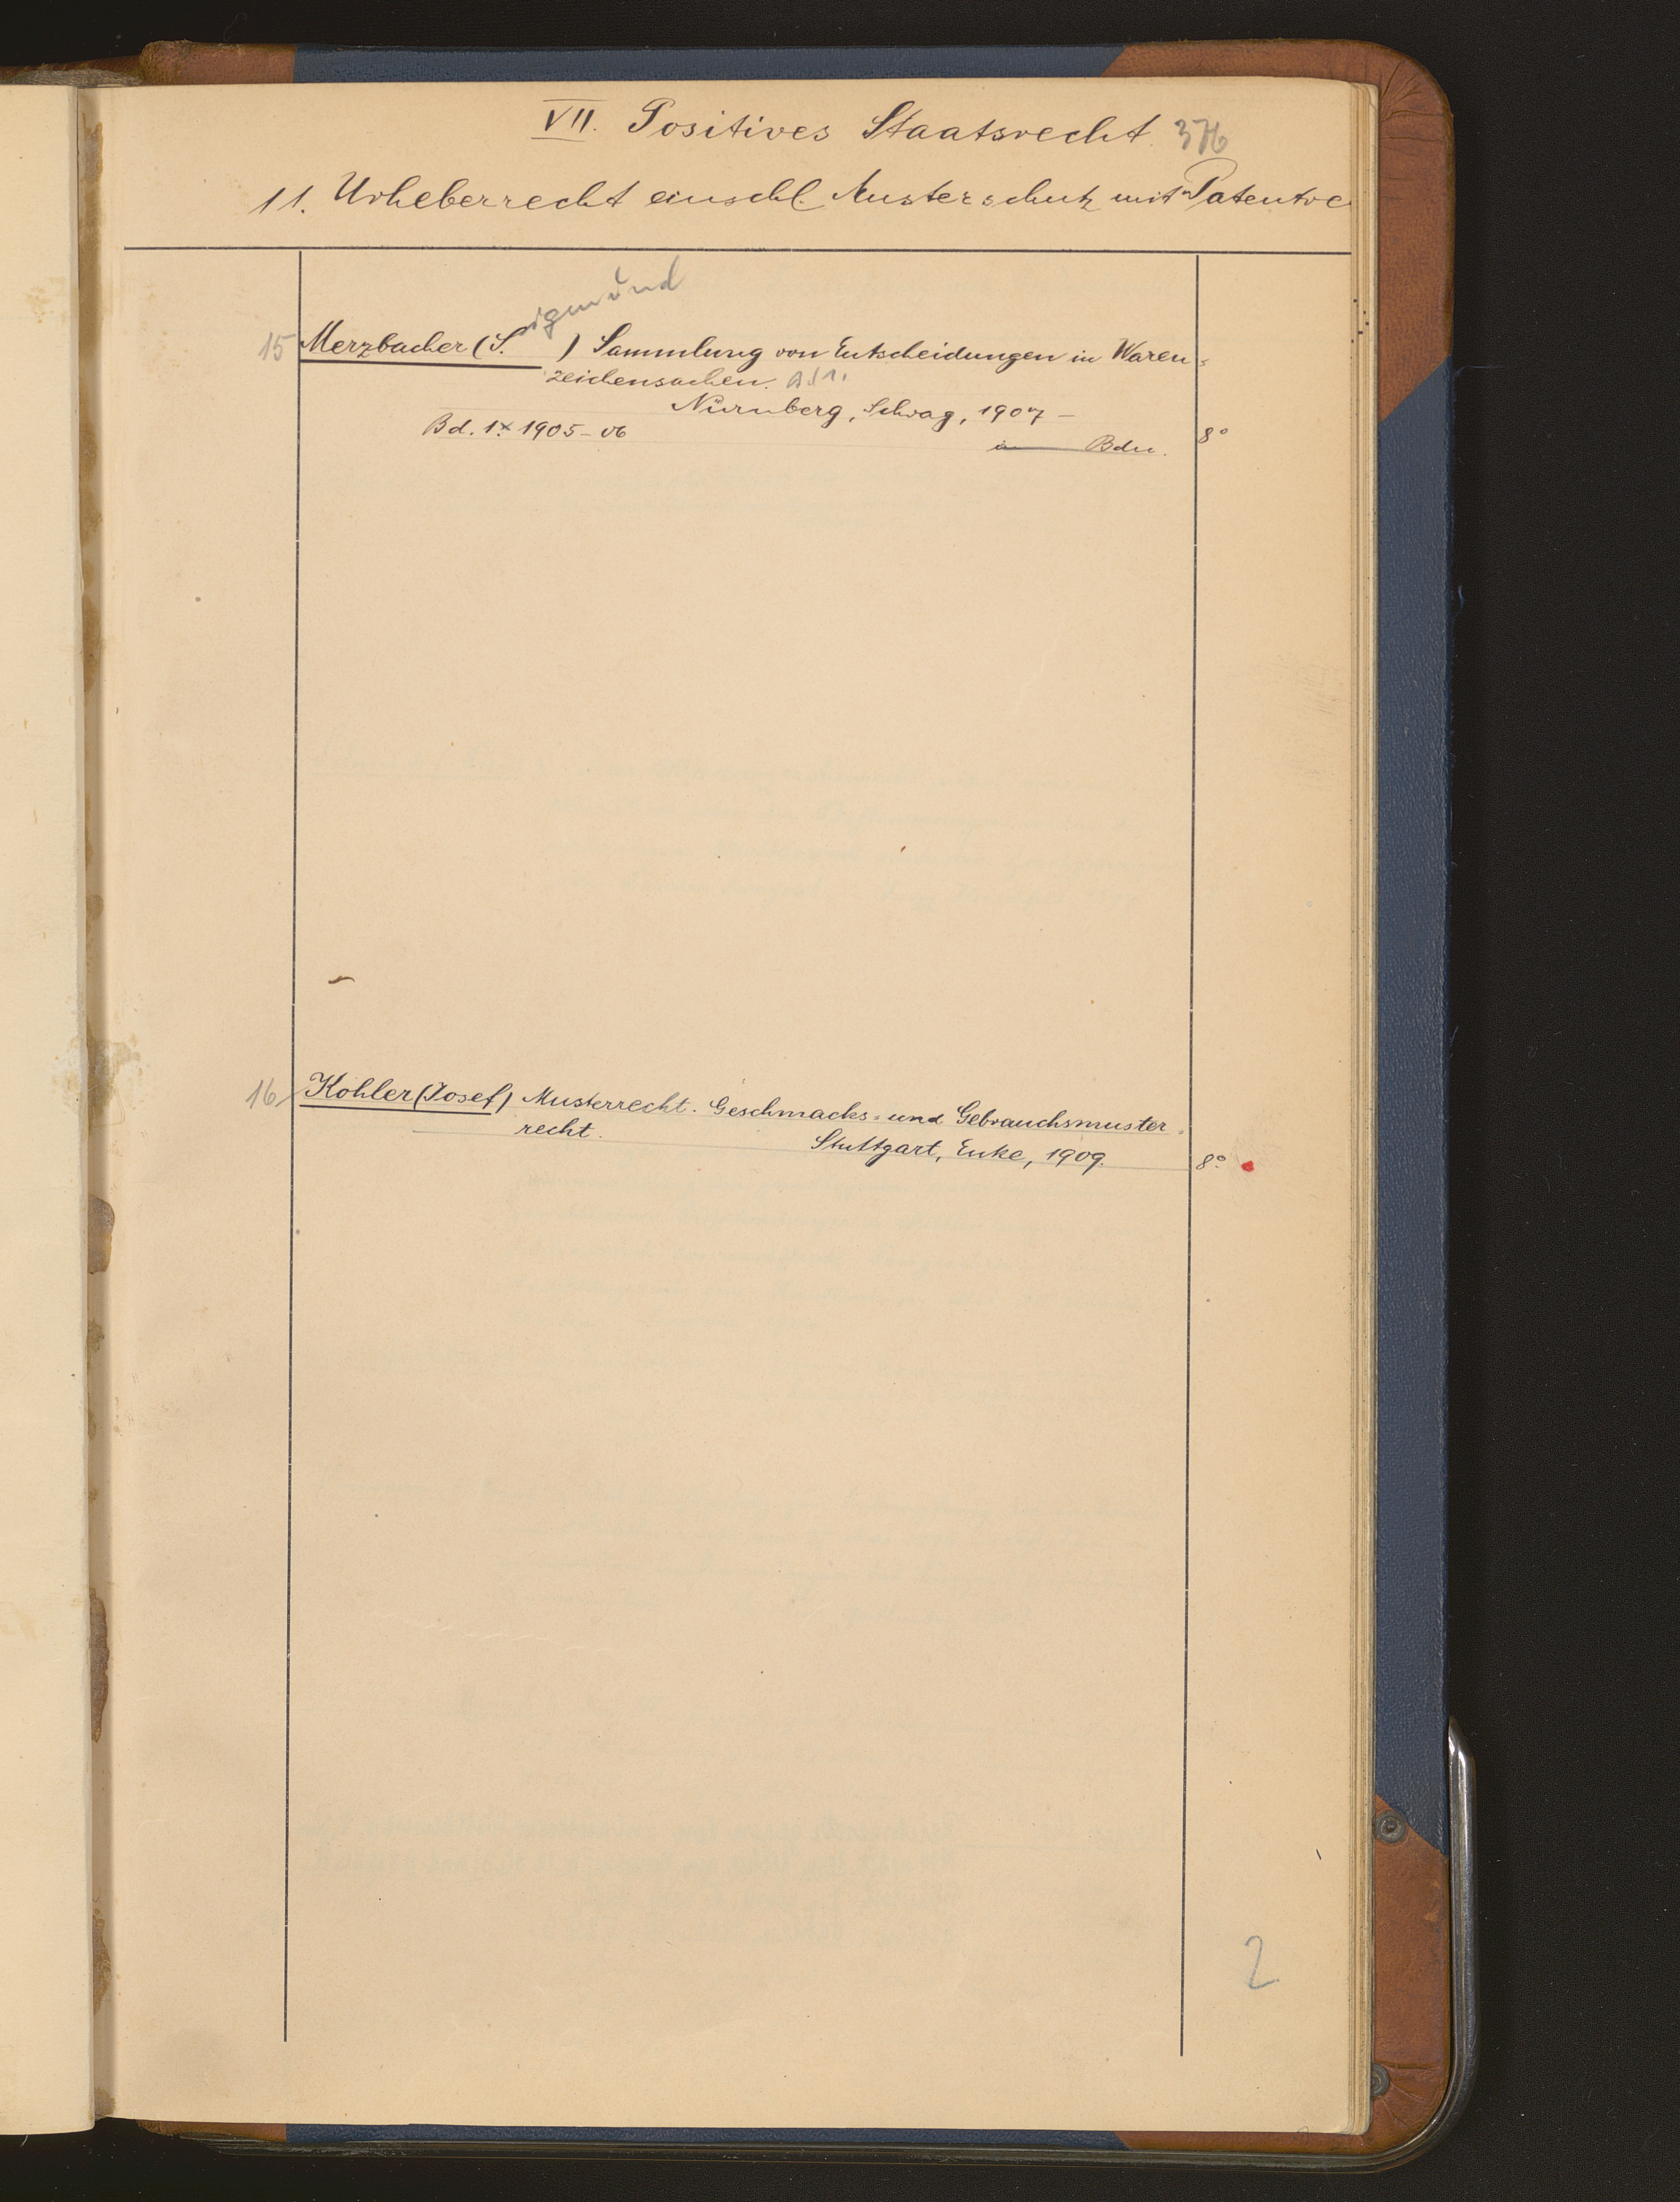 VII. Positives Staatsrecht. 376
11. Urheberrecht einschl. Musterschutz mit Patentre
igmund
15 Merzbacher (S. ) Sammlung von Entscheidungen in Waren=
zeichensachen. Bd 1.
Nürnberg, Schrag, 1907 —
Bd. 1. 1905-06
in Bdn. 8°
16 Kohler (Josef) Musterrecht. Geschmacks= und Gebrauchsmuster=
recht.
Stuttgart, Enke, 1909. 8°
2